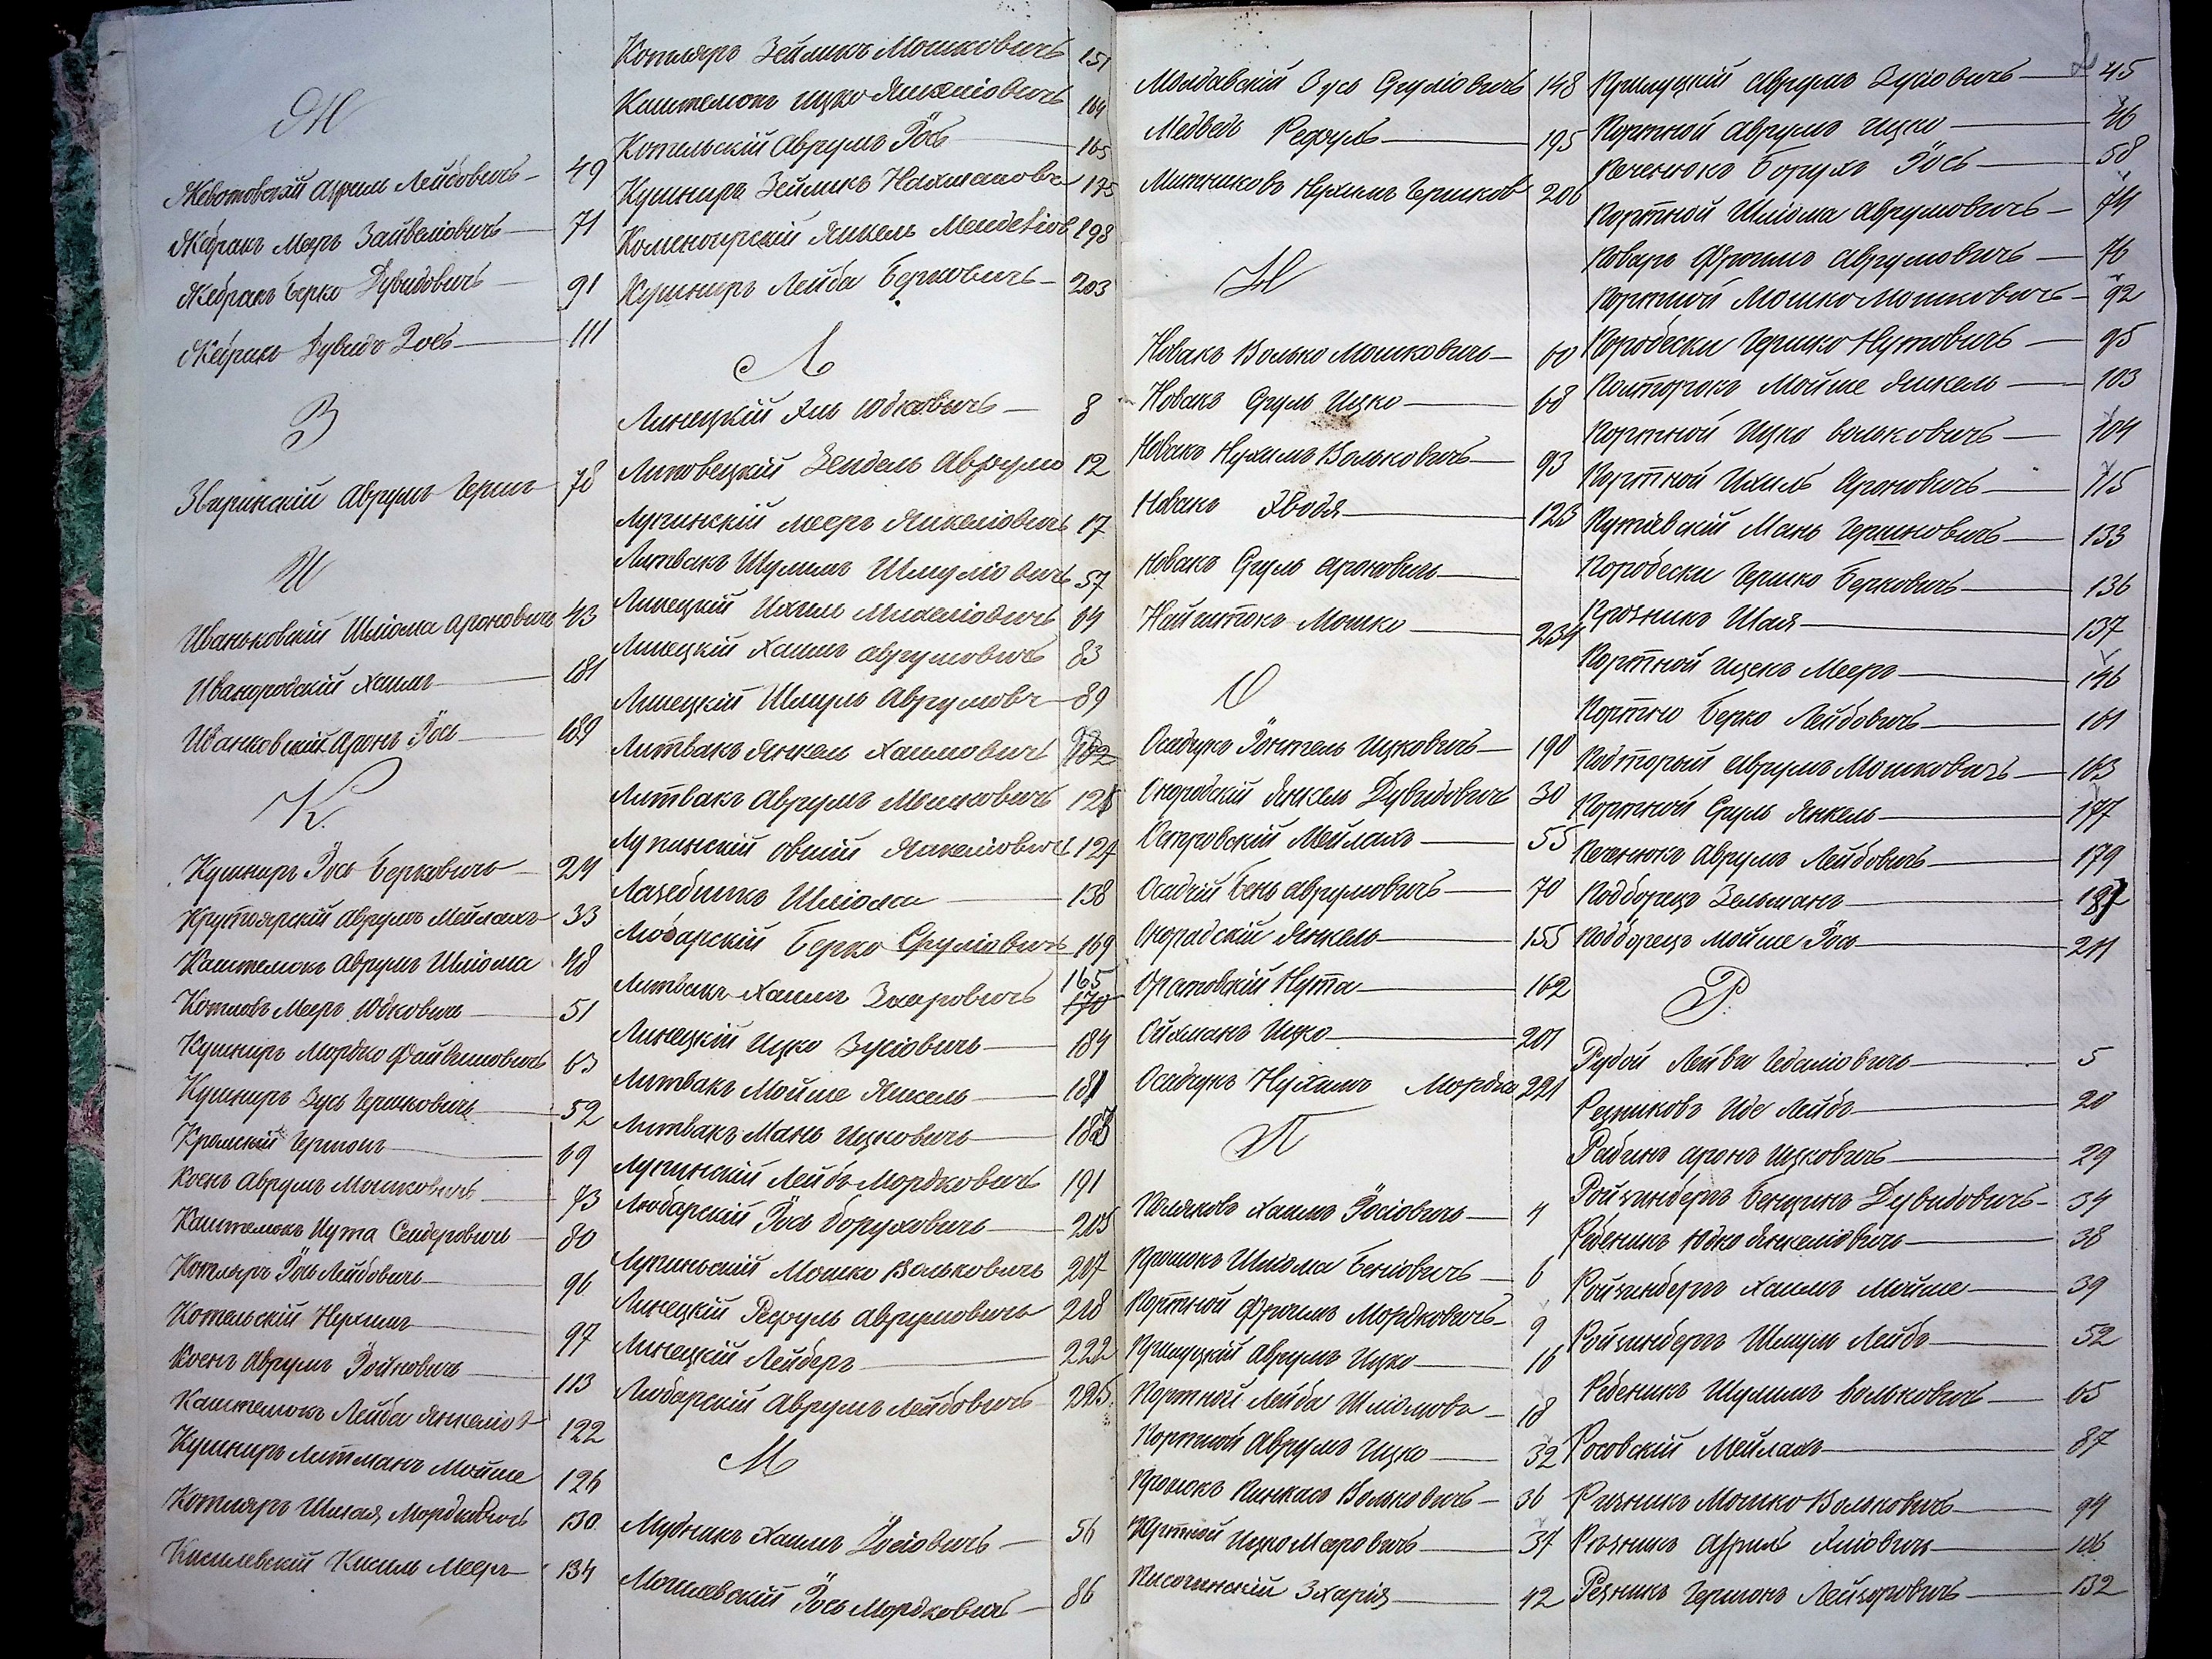 Ж
Жевотовскій Аврум Лейбовичъ 49
Жебракъ Меръ Зайвеліовичъ 71
Жебракъ Берко Дувидовичъ 91
Жебракъ Дувидъ Іось 111
З
Зваринскій Аврумъ Герш 78
И
Иваньковскій Шліома Ароновичъ 43
Ивангородскій Хаимъ 181
Иванковскій Аронъ Іось 189
К.
Кушниръ Іось Берковичъ 24
Крутоярскій Аврумъ Мейлахъ 33
Каштелюкъ Аврумъ Шліома 48
Котловъ Мееръ Юдковичъ 51
Кушниръ Мордко Файвишовичъ 63
Кушниръ Зусь Гершковичъ 52
Гершонъ 69
Коенъ Аврумъ Мошковичъ 73
Каштелюкъ Нута Сендеровичъ 80
Котляръ Іось Лейбовичъ 96
Котельскій Нухимъ 97
Коенъ Аврумъ Іойновичъ 113
Каштелюкъ Лейба Янкеліов 122
Кушниръ Литманъ Мойше 126
Котляръ Шмая Мордковичъ 130
Кисилевскій Кисиль Мееръ 134
Котляръ Зейликъ Мошковичъ 151
Каштелюкъ Ицко Янкеліовичъ 164
Котельскій Аврумъ Іось 165
Кушниръ Зейликъ Нахмановъ 175
Янкель Менделіов 198
Кушниръ Лейба Берковичъ 203
Л
Линецкій Хиль Юдковичъ 8
Литовецкій Зейдель Аврумъ 12
Лупинскій Мееръ Янкеліовичъ 17
Литвакъ Шулимъ Шмуліовичъ 57
Линецкій Ихиль Михеліовичъ 64
Линецкій Хаимъ Аврумовичъ 83
Линецкій Шмуль Аврумовъ 89
Литвакъ Янкель Хаимовичъ
Литвакъ Аврумъ Мошковичъ 125
Лупинскій Овшій Янкеліовичъ 127
Лазебникъ Шліома 138
Любарскій Берко Сруліовичъ 169
Литвакъ Хаимъ Захаровичъ 165 170
Линецкій Ицко Зусіовичъ 184
Литвакъ Мойше Янкель 181
Литвакъ Мань Ицковичъ 183
Лупинскій Лейбъ Мордковичъ 191
Любарскій Іось Боруховичъ 205
Лупиньскій Мошко Вольковичъ 207
Линецкій Рефуль Аврумовичъ 218
Линецкій Лейберъ 222
Любарскій Аврумъ Лейбовичъ 225
М
Мудникъ Хаимъ Іосіовичъ 56
Могилевскій Іось Мордковичъ 86
Молдавскій Зусь Сруліовичъ 148
Медведь Рефуль 195
Мельниковъ Нухимъ Гершков 206
Н
Новакъ Волько Мошковичъ 60
Новакъ Сруль Ицко 68
Новакъ Нухимъ Вольковичъ 93
Новакъ Хводя 123
Новакъ Сруль Ароновичъ
Найштокъ Мошко 234
О
Осадчукъ Іонтель Ицковичъ 190
Огородскій Янкель Дувидовичъ 30
Островскій Мейлахъ 55
Осадчій Бень Аврумовичъ 70
Огородскій Янкель 155
Оратовскій Нута 162
Ойхманъ Ицко 201
Осадчукъ Нухимъ Мордко 221
П
Поляковъ Хаимъ Іосіовичъ 4
Прилюкъ Шліома Беніовичъ 6
Портной Фроимъ Мордковичъ 9
Прилуцкій Аврумъ Ицко 16
Портной Лейба Шліомовъ 18
Портной Аврумъ Ицко 32
Прилюкъ Пинкасъ Вольковичъ 36
Портной Ицко Мееровичъ 37
Песочинскій Зхарія 42
Прилуцкій Аврумъ Зусіовичъ 45
Портной Аврумъ Ицко 46
Печенюкъ Борухъ Іось 58
Портной Шліома Аврумовичъ 74
Поваръ Фроимъ Аврумовичъ 76
Портной Мошко Мошковичъ 92
Поробески Гершко Нутовичъ 95
Полторокъ Мойше Янкель 103
Портной Ицко Вольковичъ 104
Портной Ихиль Ароновичъ 115
Путіевскій Мань Гершковичъ 133
Поробески Гершко Берковичъ 136
Шая 137
Портной Ицекъ Мееръ 146
Портно Берко Лейбовичъ 161
Полторый Аврумъ Мошковичъ 163
Портной Сруль Янкель 177
Печенюкъ Аврумъ Лейбовичъ 179
Подборецъ Зельманъ 187
Подборецъ Мойше Іось 211
Р.
Рудой Лейби Гедаліовичъ 5
Резниковъ Иде Лейбъ 20
Рабинъ Аронъ Ицковичъ 29
Ройзинбергъ Бенціонъ Дувидовичъ 34
Ребеникъ Юдко Янкеліовичъ 38
Ройзинбергъ Хаимъ Мойше 39
Ройзинбергъ Шмуль Лейбъ 52
Ребеникъ Шулимъ Вольковичъ 65
Росовскій Мейлахъ 87
Резникъ Мошко Вольковичъ 94
Резникъ Аврумъ Хиліовичъ 106
Резникъ Гершонъ Лейзоровичъ 132